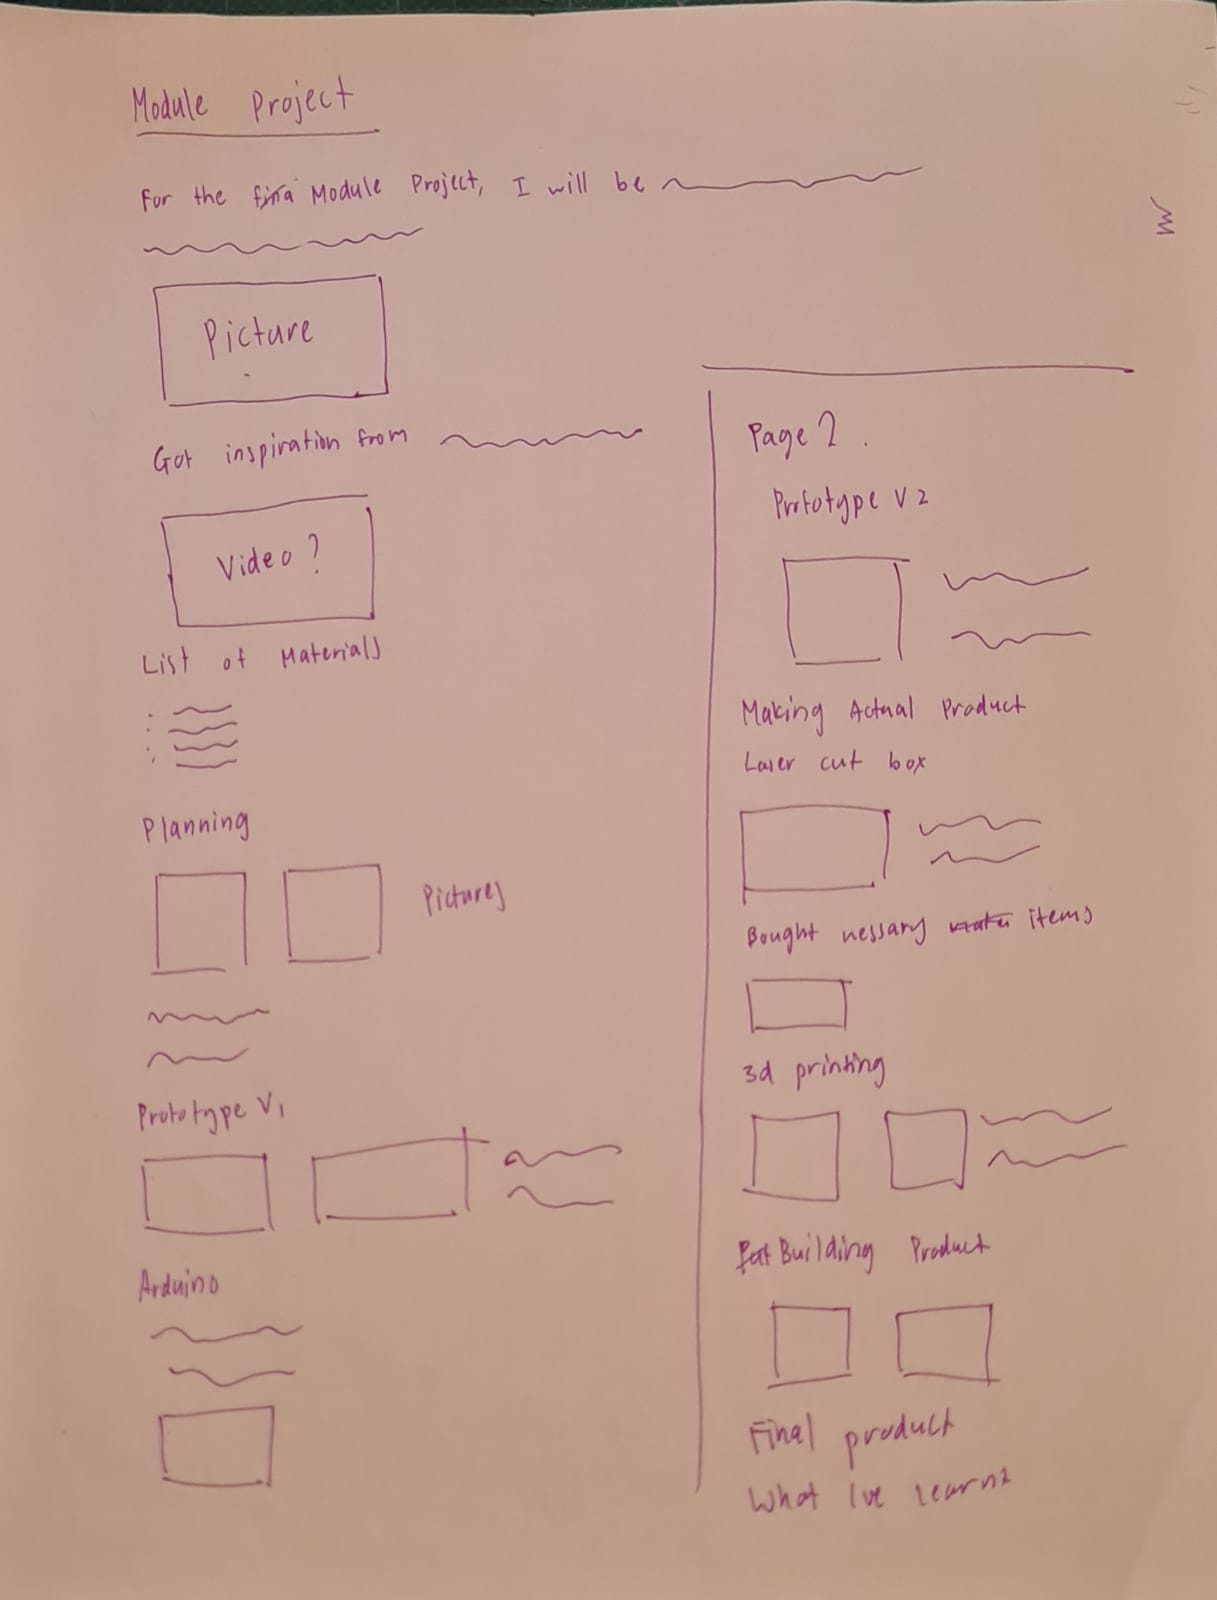 Module Project
For the fina Module Project, I will be
Picture
Got inspiration from
Video?
List of Materials
Planning
Pictures
Prototype V1
Arduino
Page 2.
Prototype V2
Making Actual Product
Laser cut box
Bought nessary items
3d printing
Building Product
Final product
What Ive learnt